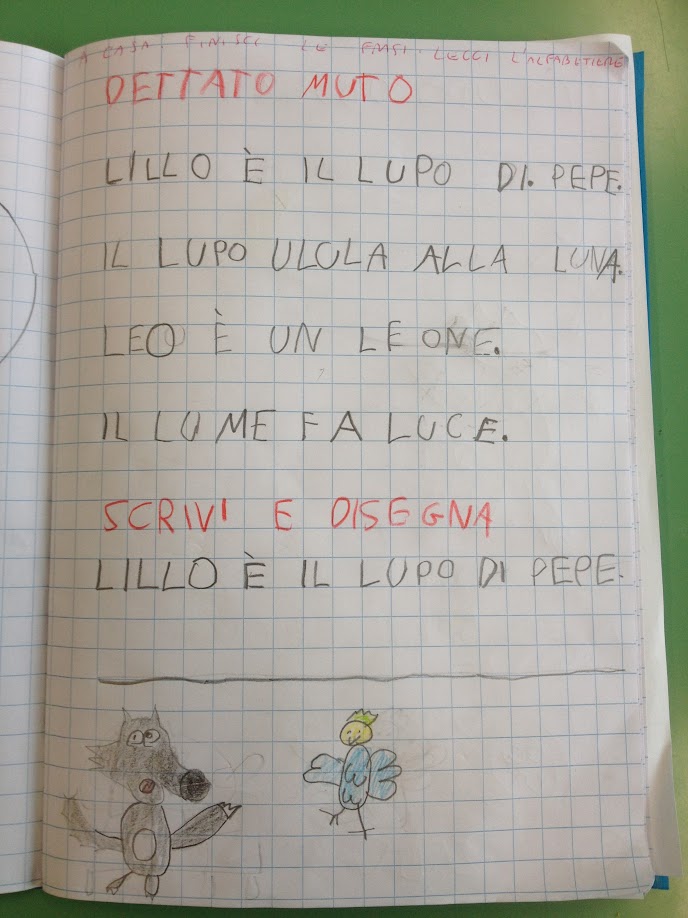 A CASA: FINISCI LE FRASI. LEGGI L'ALFABETIERE
DETTATO MUTO
LILLO È IL LUPO DI. PEPE.
IL LUPO ULULA ALLA LUNA.
LEO È UN LEONE.
IL LUME FA LUCE.
SCRIVI E DISEGNA
LILLO È IL LUPO DI PEPE.